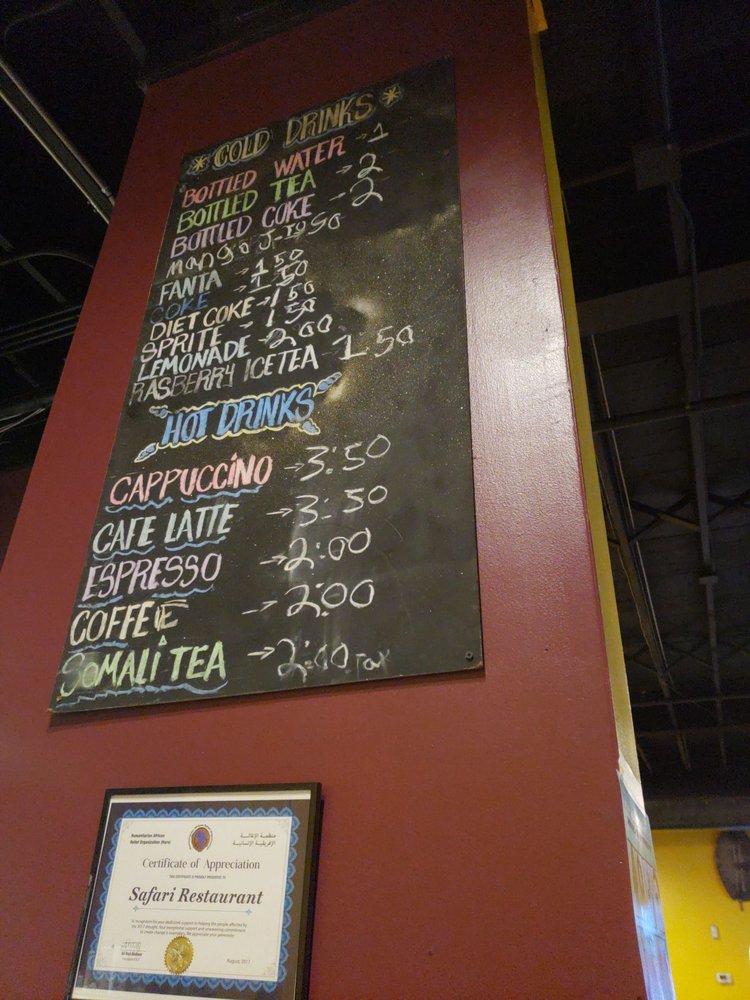 * COLD DRINKS *
BOTTLED WATER → 1
BOTTLED TEA → 2
BOTTLED COKE → 2
FANTA → 1 50
COKE → 1 50
DIET COKE → 1 50
SPRITE → 1 50
LEMONADE → 2 00
RASBERRY ICE TEA → 1 50
HOT DRINKS
CAPPUCCINO → 3:50
CAFE LATTE → 3:50
ESPRESSO → 2:00
COFFEE → 2:00
SOMALI TEA → 2:00 Tax
Humanitarian African
Relief Organization (Haro)
منظمة الإغاثة
الإفريقية الإنسانية
Certificate of Appreciation
THIS CERTIFICATE IS PROUDLY PRESENTED TO
Safari Restaurant
In recognition for your dedicated support in helping the people affected by
the 2017 drought. Your exceptional support and unwavering commitment
to create change is exemplary. We appreciate your generosity.
August, 2017